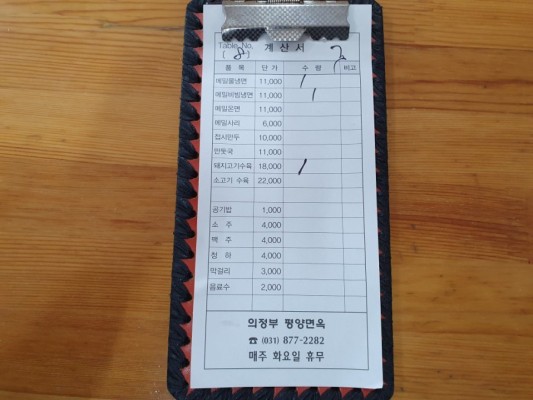 Table No. 계 산 서 2
( 8 )
품 목 단 가 수 량 비고
메밀물냉면 11,000 /
메밀비빔냉면 11,000 /
메밀온면 11,000
메밀사리 6,000
접시만두 10,000
만둣국 11,000
돼지고기수육 18,000 /
소고기 수육 22,000
공기밥 1,000
소 주 4,000
맥 주 4,000
청 하 4,000
막걸리 3,000
음료수 2,000
의정부 평양면옥
☎ (031) 877-2282
매주 화요일 휴무